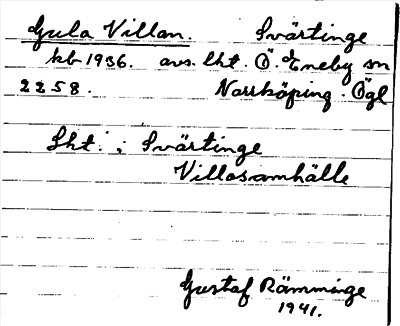 Gula Villan. Svärtinge
kb 1936. avs. lht. Ö. Eneby sn
2258. Norrköping. Ögl
Lht. i Svärtinge
Villasamhälle
Gustaf Rämminge
1941.